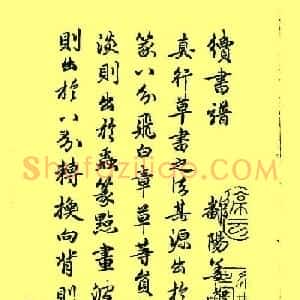 續書譜 鄱陽姜夔
真行草書之法其源出於
篆八分飛白章草等員
淡則出於蟲篆點畫波
則出於八分轉換向背則
Shufaziliao.com